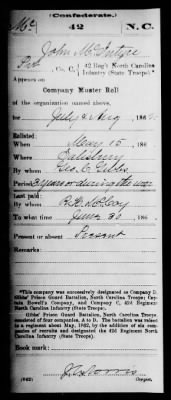 (Confederate.)
Mc 42 N.C.
John McIntyre
Pvt, Co. C, 42 Reg't North Carolina
Infantry (State Troops).*
Appears on
Company Muster Roll
of the organization named above,
for July & Aug, 186
Enlisted:
When May 15, 186
Where Salisbury
By whom Geo. C. Gibbs
Period 3 years or during the war
Last paid:
By whom
To what time June 30, 186
Present or absent Present
Remarks:
*This company was successively designated as Company D,
Gibbs' Prison Guard Battalion, North Carolina Troops; Captain
Howell's Company, and Company C, 42d Regiment
North Carolina Infantry (State Troops).
Gibbs' Prison Guard Battalion, North Carolina Troops,
consisted of four companies, A to D. The battalion was raised
to a regiment about May, 1862, by the addition of six companies
of recruits and designated the 42d Regiment North
Carolina Infantry (State Troops).
Book mark:
(642)
Copyist.